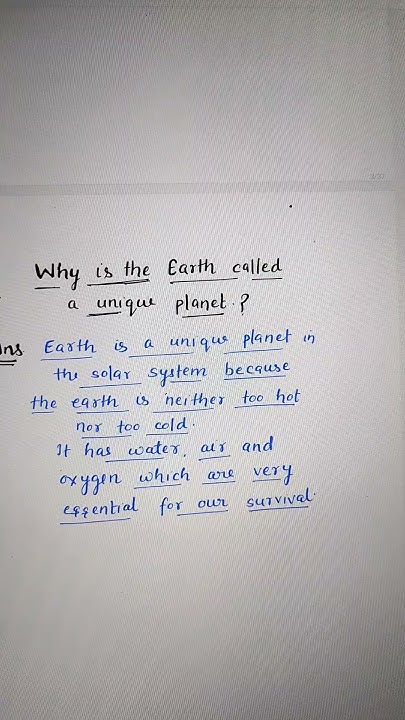 Why is the Earth called
a unique planet.?
Ans Earth is a unique planet in
the solar system because
the earth is neither too hot
nor too cold.
It has water, air and
oxygen which are very
essential for our survival.